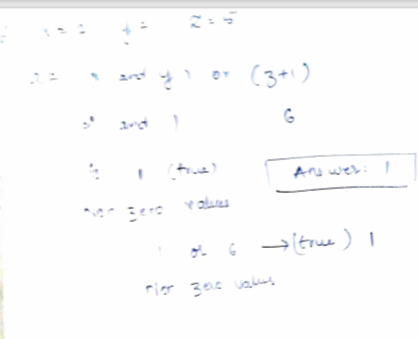 z = 5
x and y) or (z+1)
and 1 6
is 1 (true) Answer: 1
non zero values
1 or 6 →(true) 1
non zero values